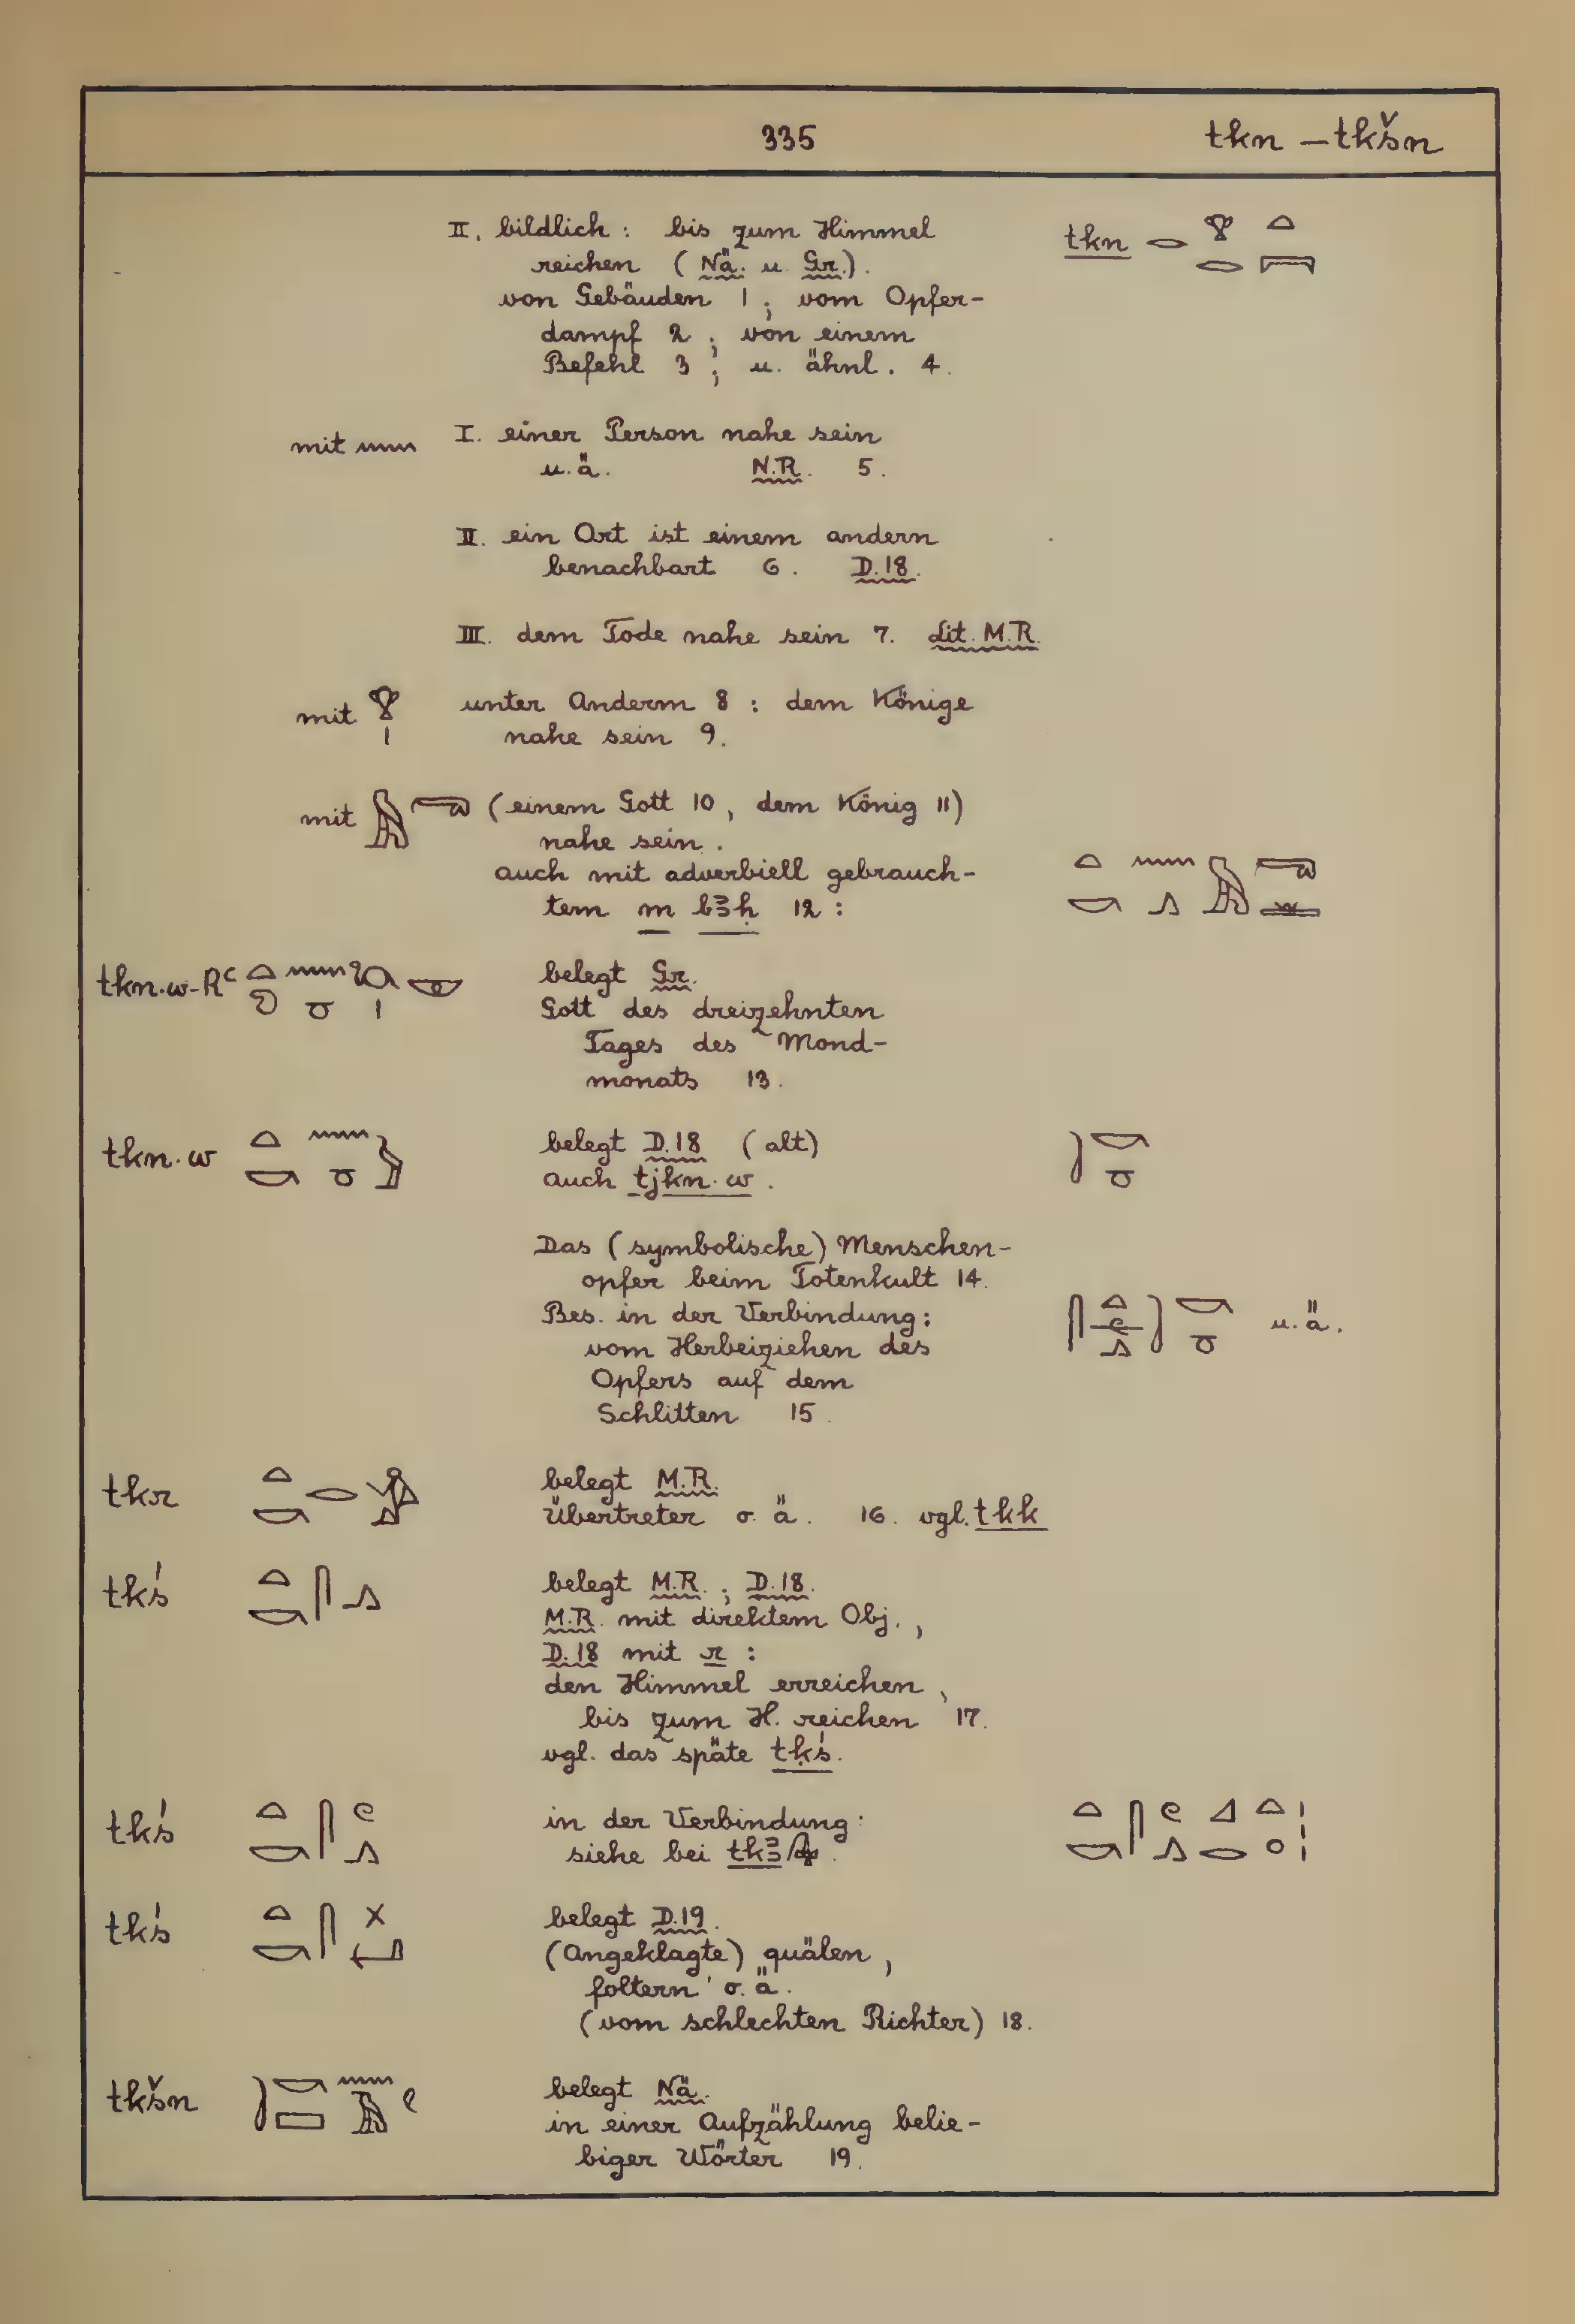 335 tkn – tkšn
II. bildlich: bis zum Himmel tkn
reichen (Nä. u. Gr.).
von Gebäuden 1; vom Opfer-
dampf 2; von einem
Befehl 3; u. ähnl. 4.
mit I. einer Person nahe sein
u.ä. N.R. 5.
II. ein Ort ist einem andern
benachbart 6. D.18.
III. dem Tode nahe sein 7. Lit. M.R.
mit unter Anderm 8: dem Könige
nahe sein 9.
mit (einem Gott 10, dem König 11)
nahe sein.
auch mit adverbiell gebrauch-
tem m bꜣḥ 12:
tkn.w-Rꜥ belegt Gr.
Gott des dreizehnten
Tages des Mond-
monats 13.
tkn.w belegt D.18 (alt)
auch tjkn.w.
Das (symbolische) Menschen-
opfer beim Totenkult 14.
Bes. in der Verbindung: u.ä.
vom Herbeiziehen des
Opfers auf dem
Schlitten 15.
tkr belegt M.R.
Übertreter o.ä. 16. vgl. tkk
tkś belegt M.R.; D.18.
M.R. mit direktem Obj.,
D.18 mit r:
den Himmel erreichen,
bis zum H. reichen 17.
vgl. das späte tḳś.
tkś in der Verbindung:
siehe bei tkꜣ
tkś belegt D.19.
(Angeklagte) quälen,
foltern o.ä.
(vom schlechten Richter) 18.
tkšn belegt Nä.
in einer Aufzählung belie-
biger Wörter 19.